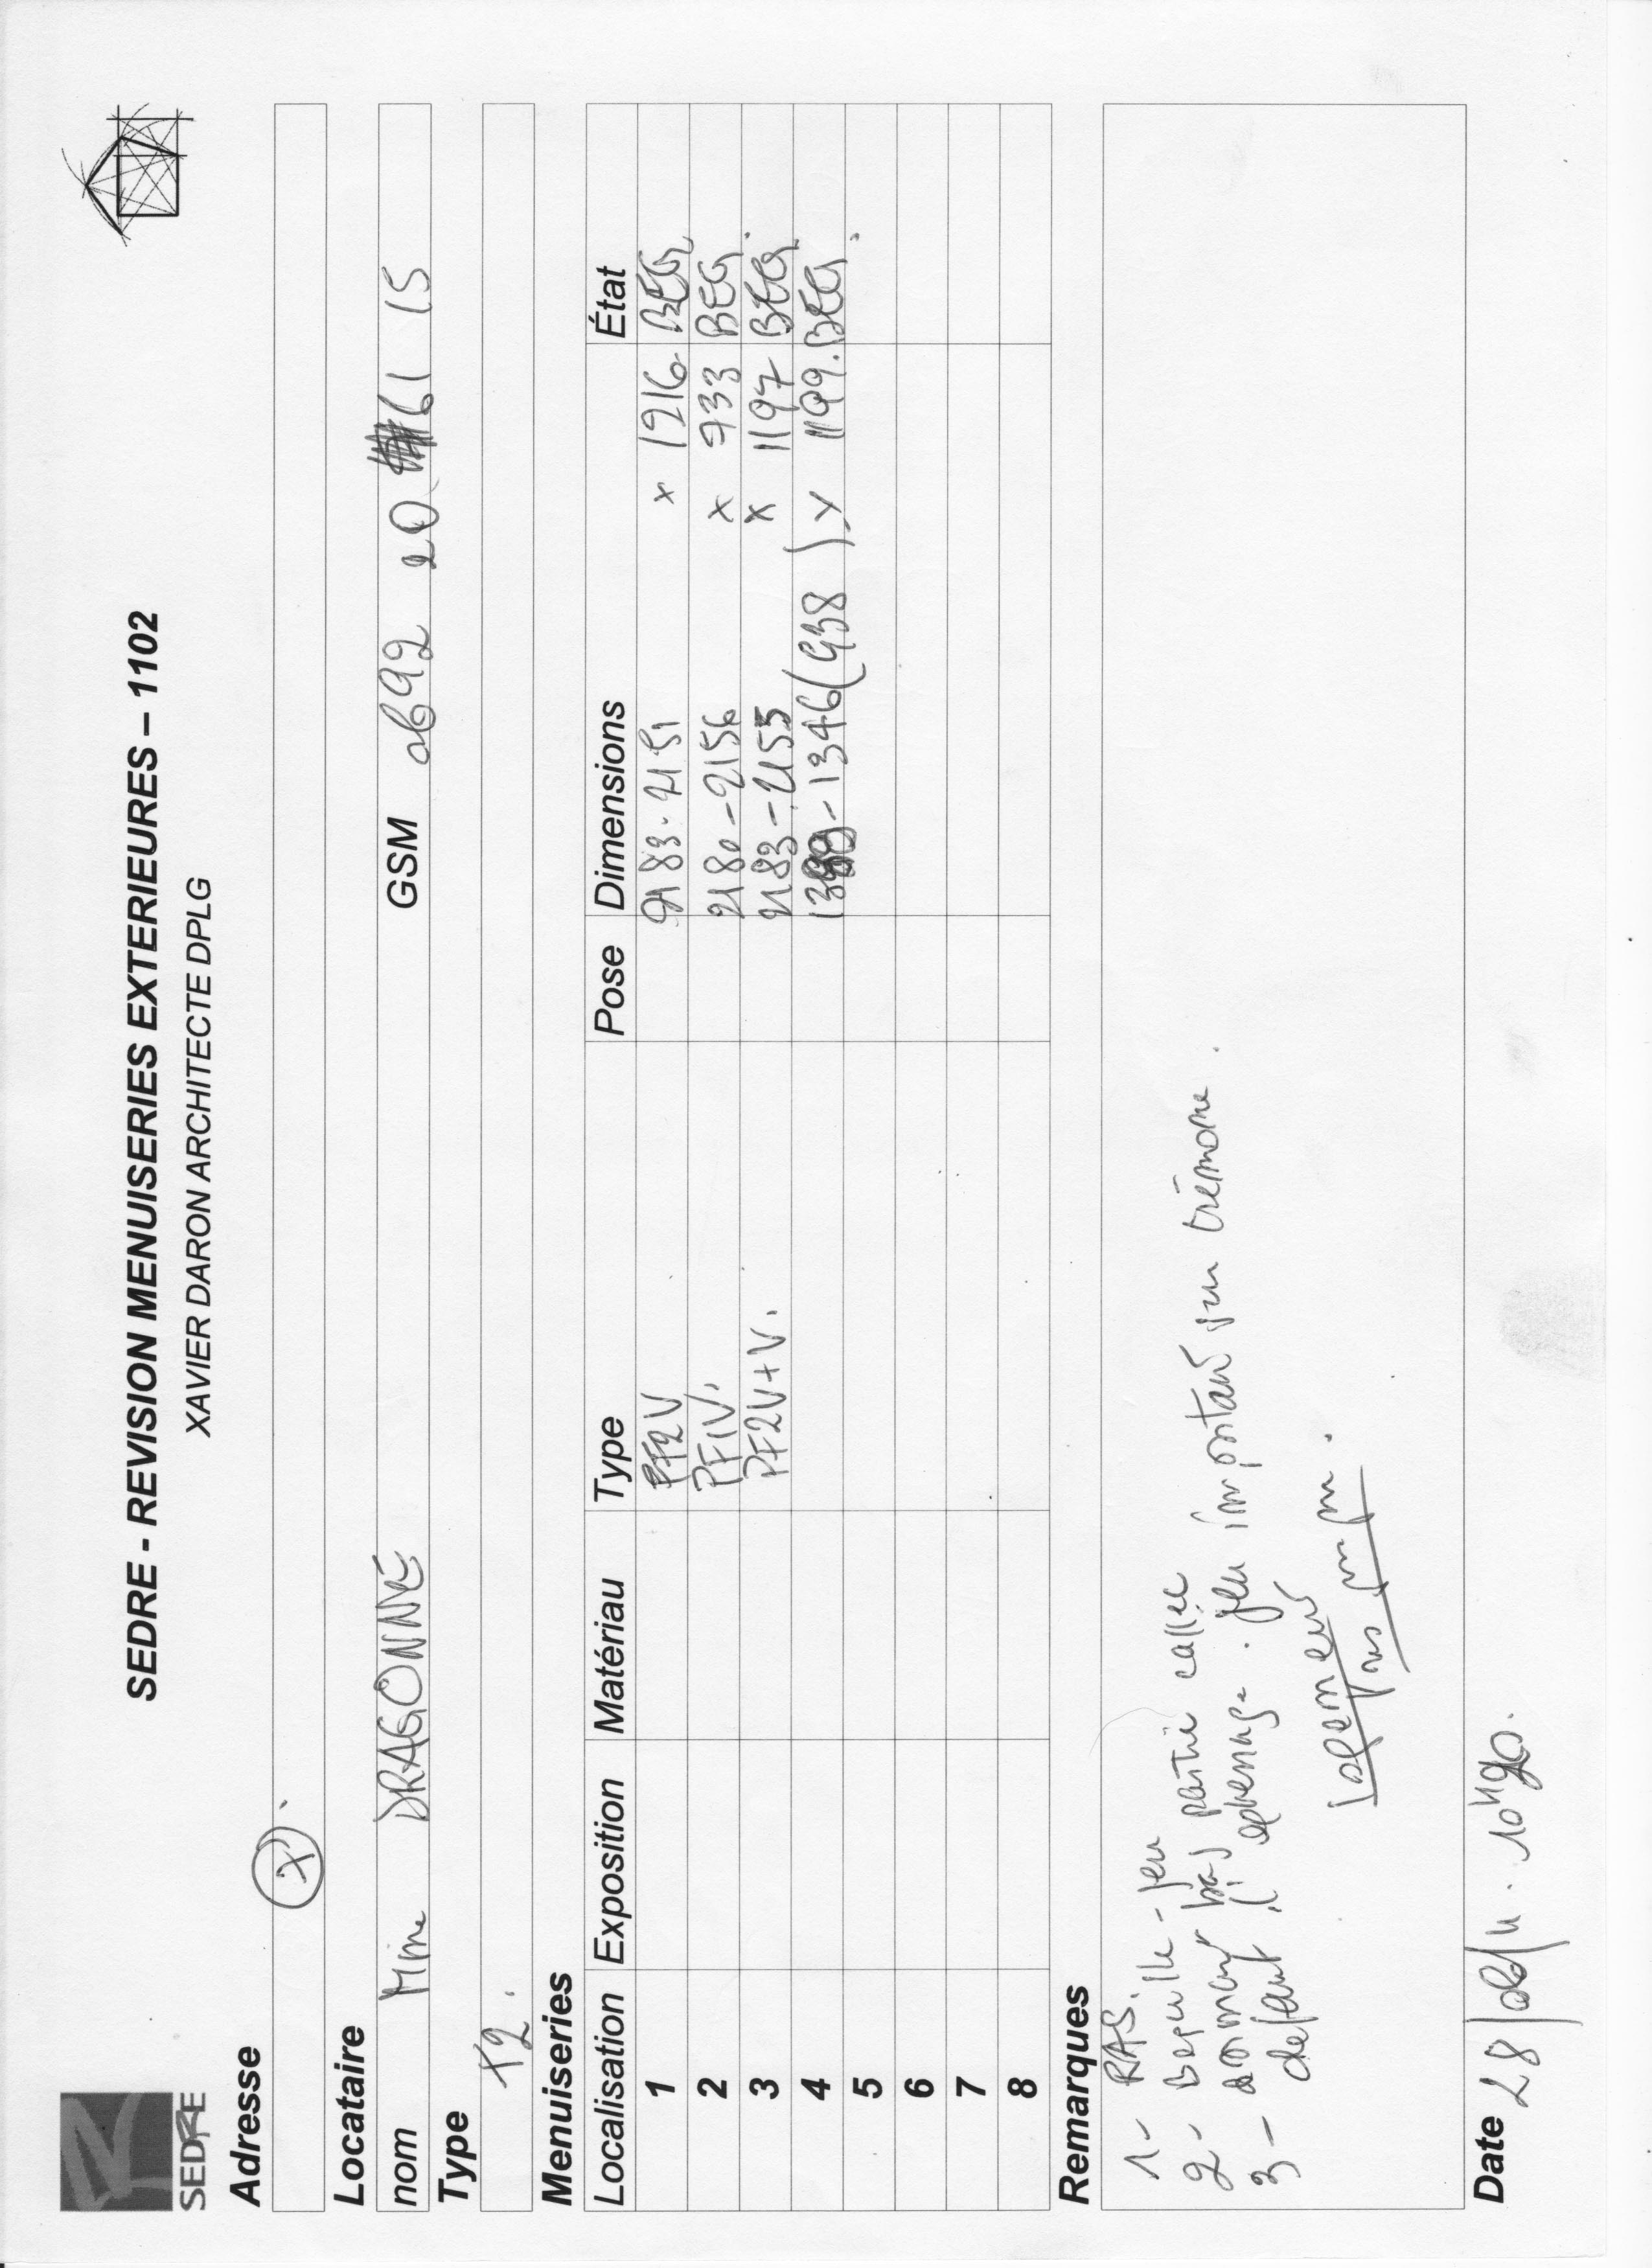 SEDRE - REVISION MENUISERIES EXTERIEURES – 1102
XAVIER DARON ARCHITECTE DPLG
SEDRE
Adresse
Locataire
nom Mme DRAGONNE GSM 0692 20 61 15
Type
T2.
Menuiseries
Localisation Exposition Matériau Type Pose Dimensions État
1 PF2V 2183-2151 x 1216 BEG
2 PF1V. 2180-2156 x 933 BEG.
3 PF2V+V. 2183-2155 x 1197 BEG
4 -1346(938) x 1199. BEG.
5
6
7
8
Remarques
1- RAS.
2- Bequille - jeu
dormant bas partie cassée
3- defaut d'équerrage. jeu important sur crémone.
Logement
Date 28/ 10H20.